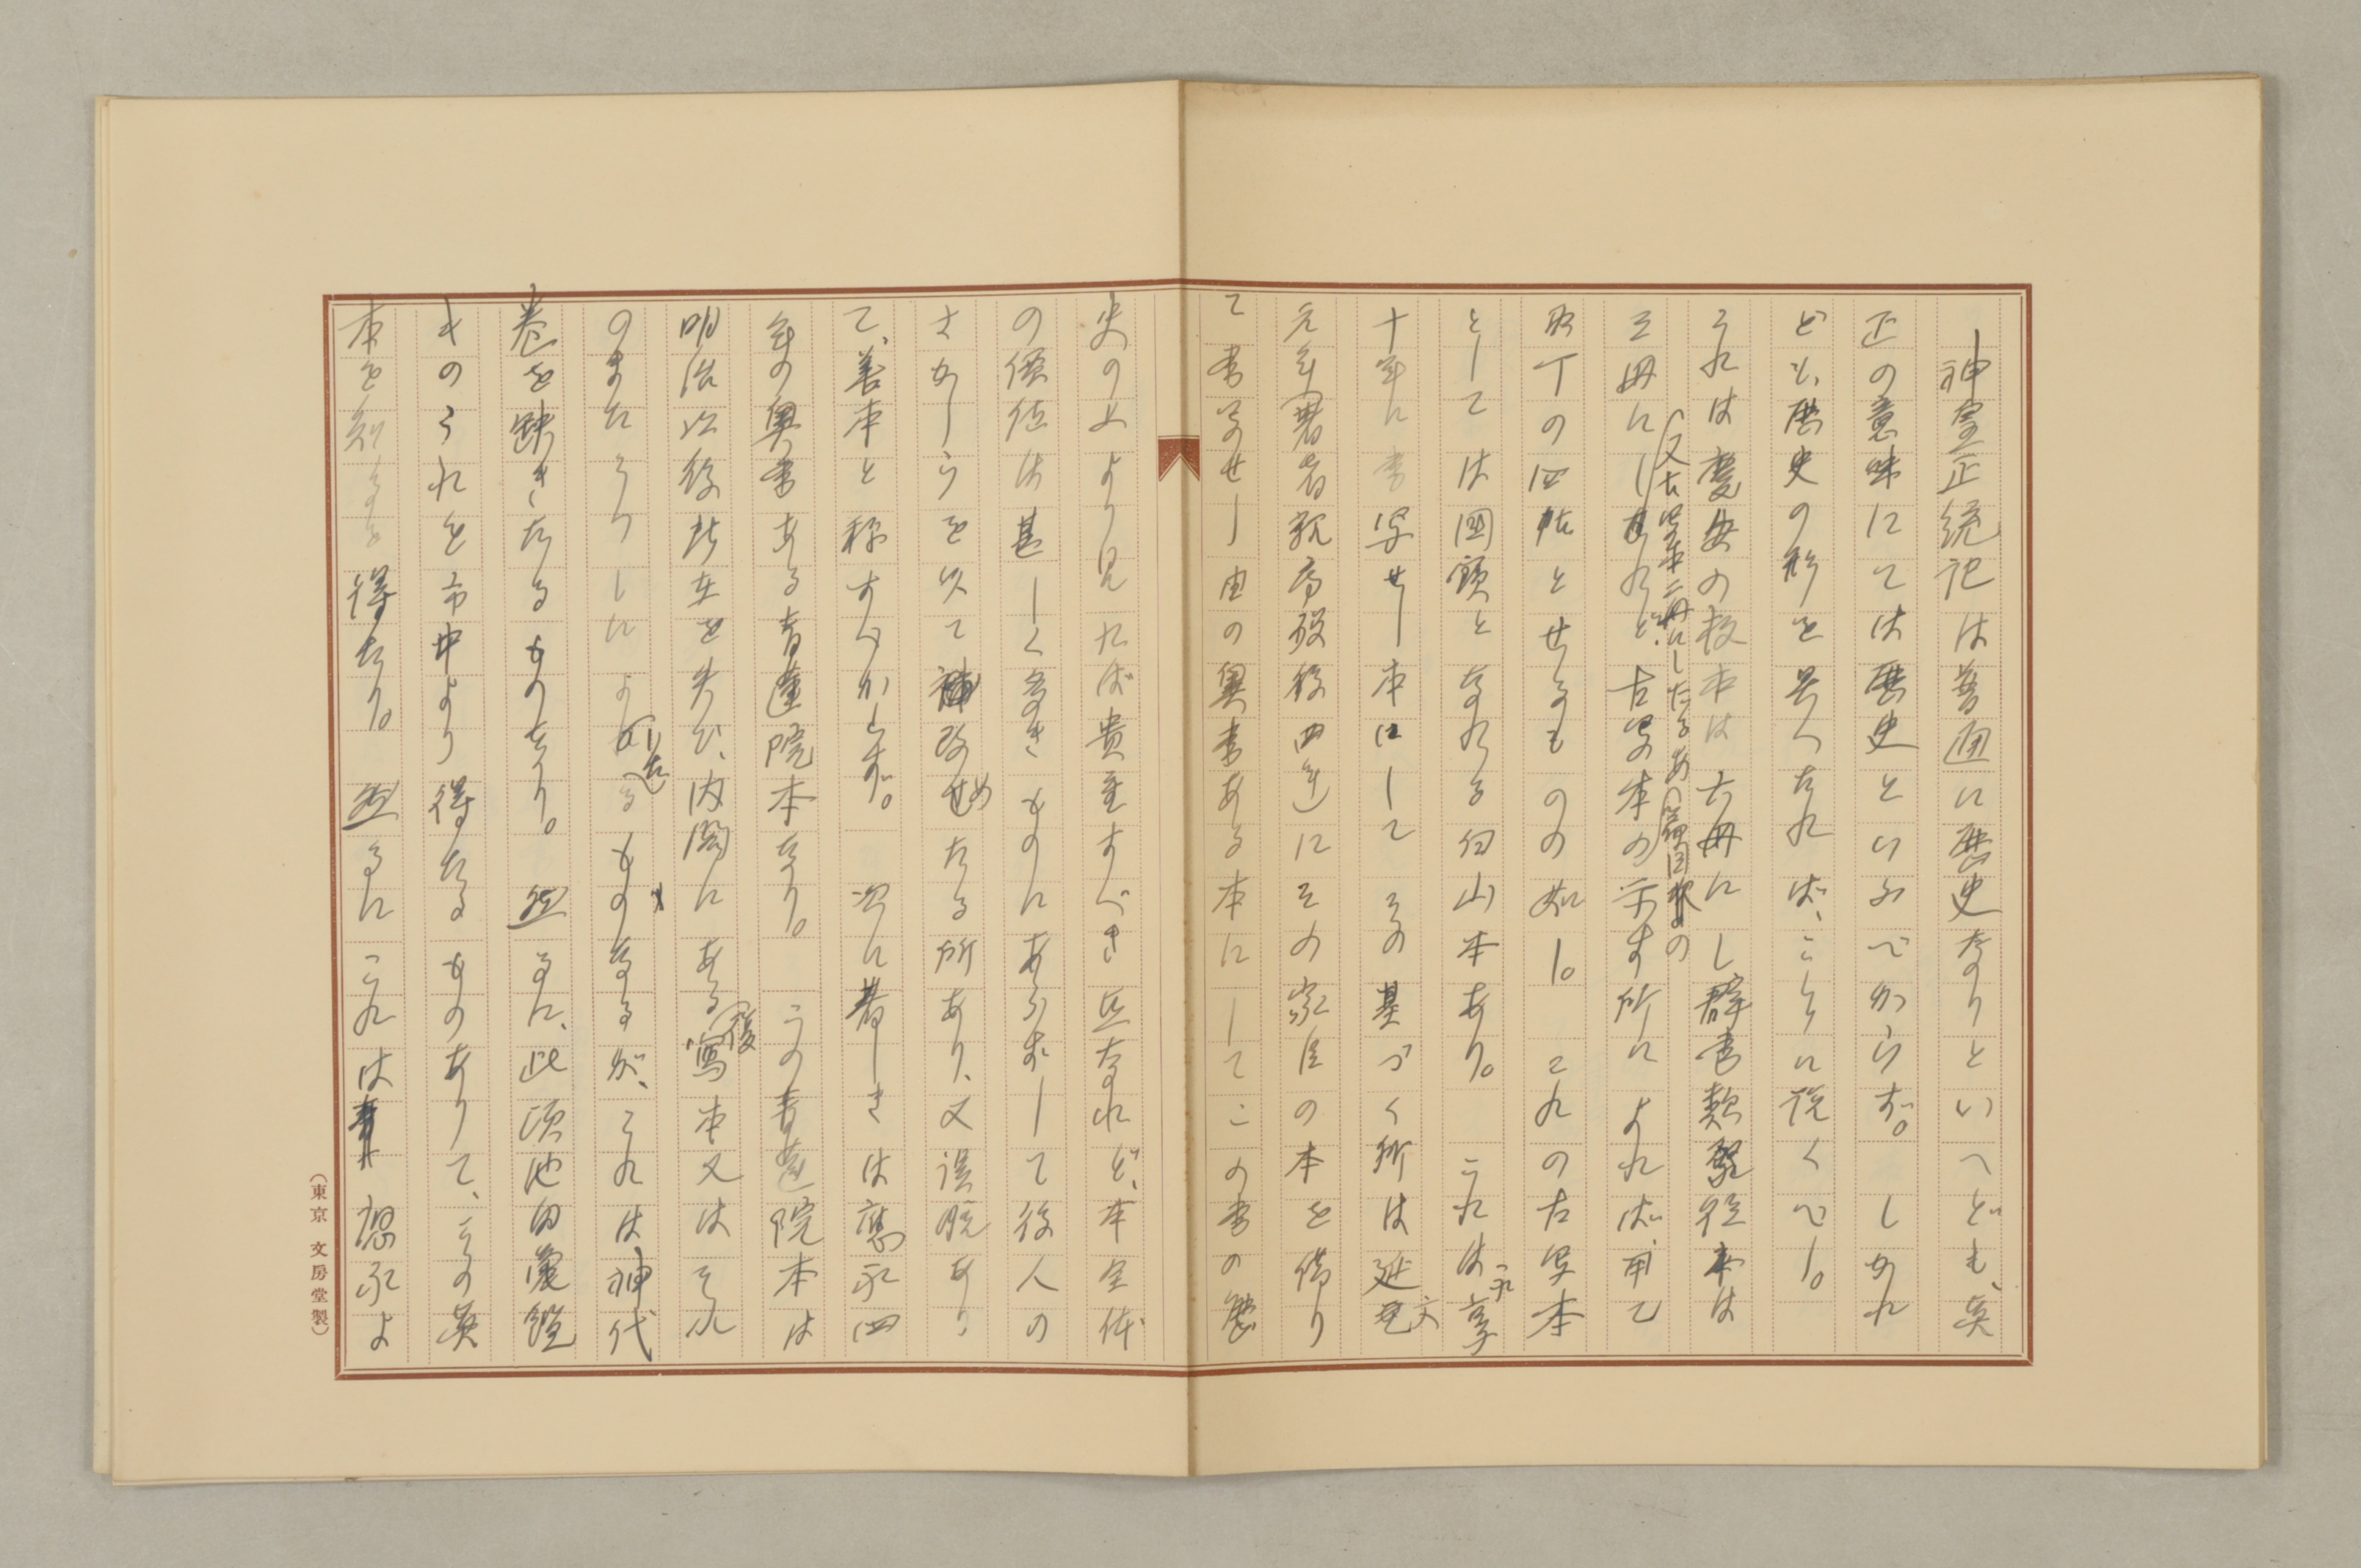 神皇正統記は普通に歴史なりといへども、真
正の意味にては歴史といふべからず。しかれ
ども、歴史の形を具へたれば、こゝに説くべし。
これは慶安の板本は六冊にし群書類聚従本は
又古写本二冊にしたるあり
三冊にしたれど、古写本の示す所によれば、甲乙
丙丁の四帖とせるものの如し。これの古写本
としては国宝となれる白山本あり。これは享
十年に書写せし本にしてその基づく所は延文
元年(著者親房歿後四年)にその家臣の本を借り
て書写せし由の奥書ある本にしてこの書の歴
史の上より見れば貴重すべき本なれど、本全体
の価値は甚しく高きものにあらずして後人の
さかしらを以て補改めたる所あり、又誤脱あり
て、善本と称すべからず。次に著しきは應永四
年の奥書ある青蓮院本なり。この青蓮院本は
明治以後所在を失ひ、内閣にある寫本又はそれ
のまたうつしによりたるものなるが、これは神代
巻を缺きたるものなり。然るに、此頃池田亀鑑
氏のそれを市中より得たるものありて、その英
本を刻するを得たり。然るにこれは應永よ
(東京 文房堂製)